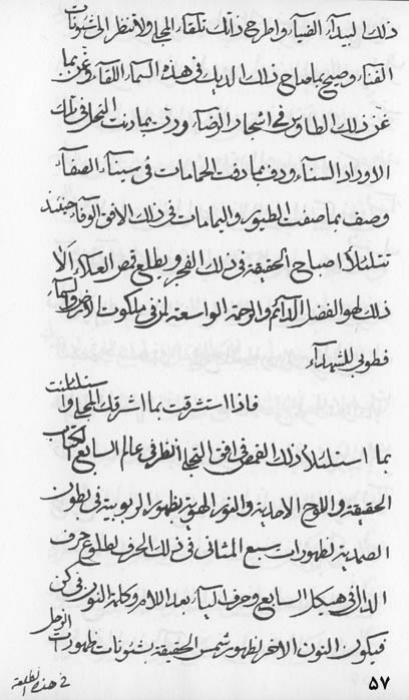 ذلك البيداء الضياء واطرح ذاتك تلقاء العجا والنظر الى شئونات
الفناء وصح بماصاح ذلك الديك في هذه السماء اللقاء وغن بما
غن ذلك الطاوس في اشجار الرضاء ورن بما رنت النحل في تلك
الاوراد السناء ودف بما دفت الحمامات في سيناء الصفاء
وصف بما صفت الطيور واليمامات في ذلك الافق الوفاء حينئذ
تتلئلأ اصباح الحقيقة في ذلك الفجر ويطلع قمص العلاء الا
ذلك هو الفضل الدائم والرحمة الواسعة لمن في ملكوت الامر
فطوبى للشهداء
فاذا استشرقت بما اشرقك
بما استتلئلأ ذلك القمص في افق انظر في عالم السابع
الحقيقة واللوح الاحدية والنور الهوية بظهور الربوبية في بطون
الصمدية لظهورات سبع المثاني في ذلك الحرف بطلوع حرف
الدال في هيكل السابع وحرف الياء بعد اللام وكلمة النون في كن
فيكون النون الاخر لظهور شمس الحقيقة بشئونات ظهورات
في هذه الطلعة
٥٧